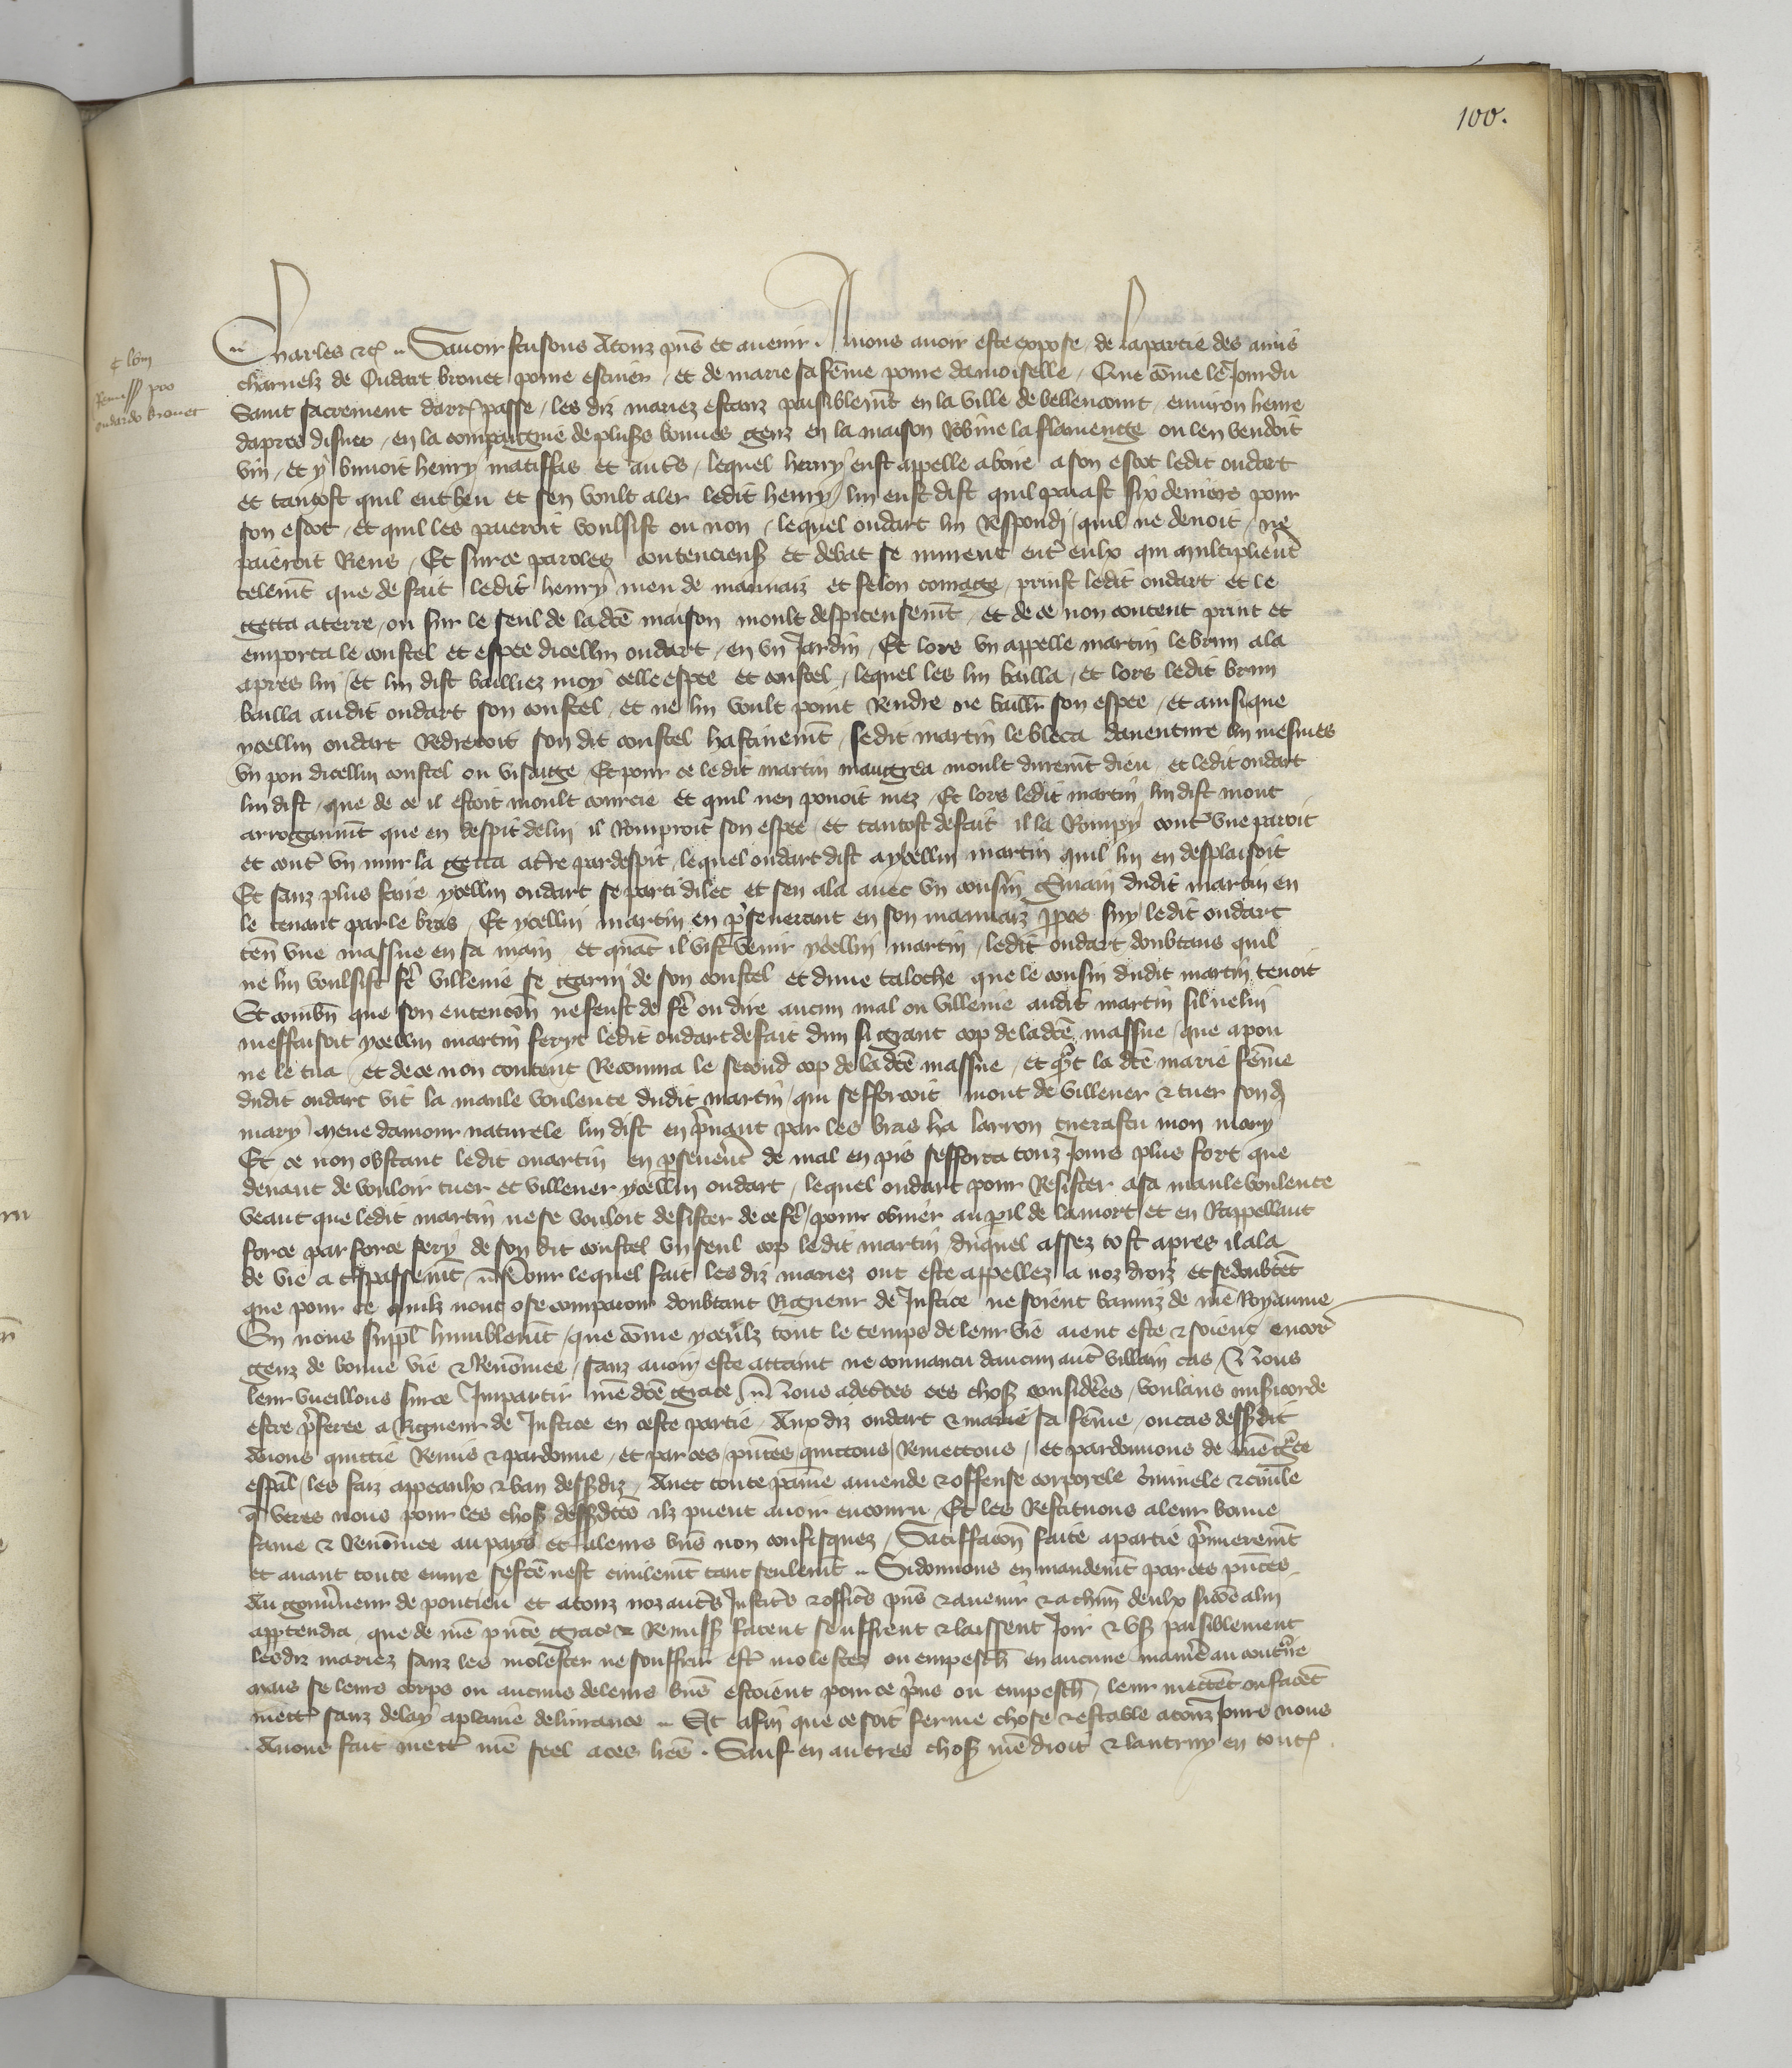 100.
Remiss pro
oudardo brouet
Charles etc. Savoir faisons a touz p̃ns et avenir. Avons avoir este expose de la partie des amis
charnelz de Oudart brouet pouvre escuier et de marie sa fẽme povre damoiselle, Que cõme le Jour du
Saint sacrement darr passe, les diz mariez estanz paisiblem̃t en la ville de bellencourt environ heure
dapres disner, en la compaignie de plus̃s bonnes genz en la maison Robine la flamenge ou len vendoit
vin, et y buvoit henry matiffas et aut̃s, lequel henry eust appelle a boire a son escot ledit oudart
et tantost quil eut beu et sen voult aler ledit henry lui eust dist quil paiast six deniers pour
son escot, et quil les paieroit voulsist ou non, lequel oudart lui Respondi quil ne devoit, ne
paieroit Riens, Et sur ce paroles contencieus̃ et debat se murent ent̃ eulx qui multiplier̃t
telem̃t que de fait ledit henry meu de mauvaiz et felon corage, prinst ledit oudart et le
getta a terre, ou sur le seul de lad̃ce maison moult despiteusem̃t, et de ce non content print et
emporta le coustel et espee dicellui oudart, en un Jardin, Et lors un appelle martin le brun ala
apres lui, et lui dist bailliez moy celle espee et coustel, lequel les lui bailla, et lors ledit brun
bailla audit oudart son coustel, et ne lui voult point Rendre ne baill̃r son espee, et ainsi que
ycellui oudart Redrecoit son dit coustel hastivem̃t, ledit martin se bleca daventure lui mesmes
un pou dicellui coustel ou visaige, Et pour ce ledit martin maugrea moult durem̃t dieu, et ledit oudart
lui dist, que de ce il estoit moult courcie et quil nen povoit mez, Et lors ledit martin lui dist mout
arrogaument que en despit de lui il Romproit son espee, et tantost de fait il la Rompy cont̃ une paroit
et cont̃ un mur la getta a t̃re par despit, lequel oudart dist a ycellui martin quil lui en desplaisoit
Et sanz plus faire ycellui oudart se parti dilec et sen ala avec un cousin g̃main dudit martin en
le tenant par le bras, Et ycellui martin en p̃severant en son mauvaiz p̃pos suy ledit oudart
ten̄ une massue en sa main, et quãt il vist venir ycellui martin, ledit oudart doubtans quil
ne lui voulsist fẽ villenie se garni de son coustel et dune taloche que le cousin dudit martin tenoit
Et combñ que son entenc̃on ne feust de fẽ ou dire aucun mal ou villenie audit martin sil ne lui
meffaisoit ycellui martin feryt ledit oudart de fait dun si grant cop de lad̃ce massue, que a pou
ne le tua, et de ce non content Recouvra le second cop de lad̃ce massue, et q̃nt la d̃ce marie fẽme
dudit oudart vit la male voulente dudit martin, qui sefforcoit mout de villener et tuer sond̃
mary meue damour naturele lui dist en p̃nant par les bras ha larron tueras tu mon mary
Et ce non obstant ledit martin en p̃sever̃nt de mal en pis sefforca touz Jours plus fort que
devant de vouloir tuer et villener ycellui oudart, lequel oudart pour Resister a sa male voulente
veant que ledit martin ne se vouloit desister de ce fẽ, pour obvier au p̃il de la mort et en Rappellant
force par force fery de son dit coustel un seul cop ledit martin, duquel assez tost apres il ala
de vie a t̃spassem̃t, Pour lequel fait les diz mariez ont este appellez a noz droiz et se doubtẽt
que pour ce quilz nont ose comparoir doubtant Rigueur de Justice ne soient banniz de ñre Royaume
En nous suppl̃ humblem̃t, que cõme yceulz tout le temps de leur vie aient este et soient encor̃
genz de bonne vie et Renõmee, sanz avoir este attaint ne convaincu daucun aut̃ villain cas, Nous
leur vueillons sur ce Impartir ñre d̃ce grace, Nous adecertes ces chos̃ consider̃es, voulans mis̃icorde
estre p̃feree a Rigueur de Justice en ceste partie, Aux diz oudart et marie sa fẽme, ou cas dess̃dit
Avons quittie Remis et pardonne, et par ces p̃ntes quittons Remettons, et pardonnons de ñre g̃ce
esp̃al, les faiz appeaulx et ban dess̃diz, Avec toute paine amende et offense corporele c̃iminele et civile
q̃ vers nous pour les chos̃ dess̃d̃ces ilz puent avoir encouru, Et les Restituons a leur bonne
fame et Renõmee au pays et a leurs biẽs non confisquez, Satiffac̃on faite a partie p̃mierem̃t
et avant toute euvre se f̃ce nest civilem̃t tant seulem̃t. Si donnons en mandem̃t par ces p̃ntes
Au gouṽneur de pontieu et a touz noz aut̃s Justic̃s et offic̃s p̃ns et avenir et a ch̃un deulx si c̃õe a lui
app̃tendra, que de ñre p̃nte grace et Remiss̃ facent seuffrent et laissent Joir et us̃ paisiblement
lesdiz mariez sanz les molester ne souffrir est̃ molestez ou empesch̃ en aucune manie̋re au cont̃ire
mais se leurs corps ou aucuns de leurs biẽs estoient pour ce p̃ns ou empesch̃, leur mettẽt ou facẽt
mett̃ sanz delay a plaine delivrance. Et afin que ce soit ferme chose et estable a touz Jours nous
Avons fait mett̃ ñre seel a ces l̃res. Sauf en autres chos̃ ñre droit et lautruy en tout̃